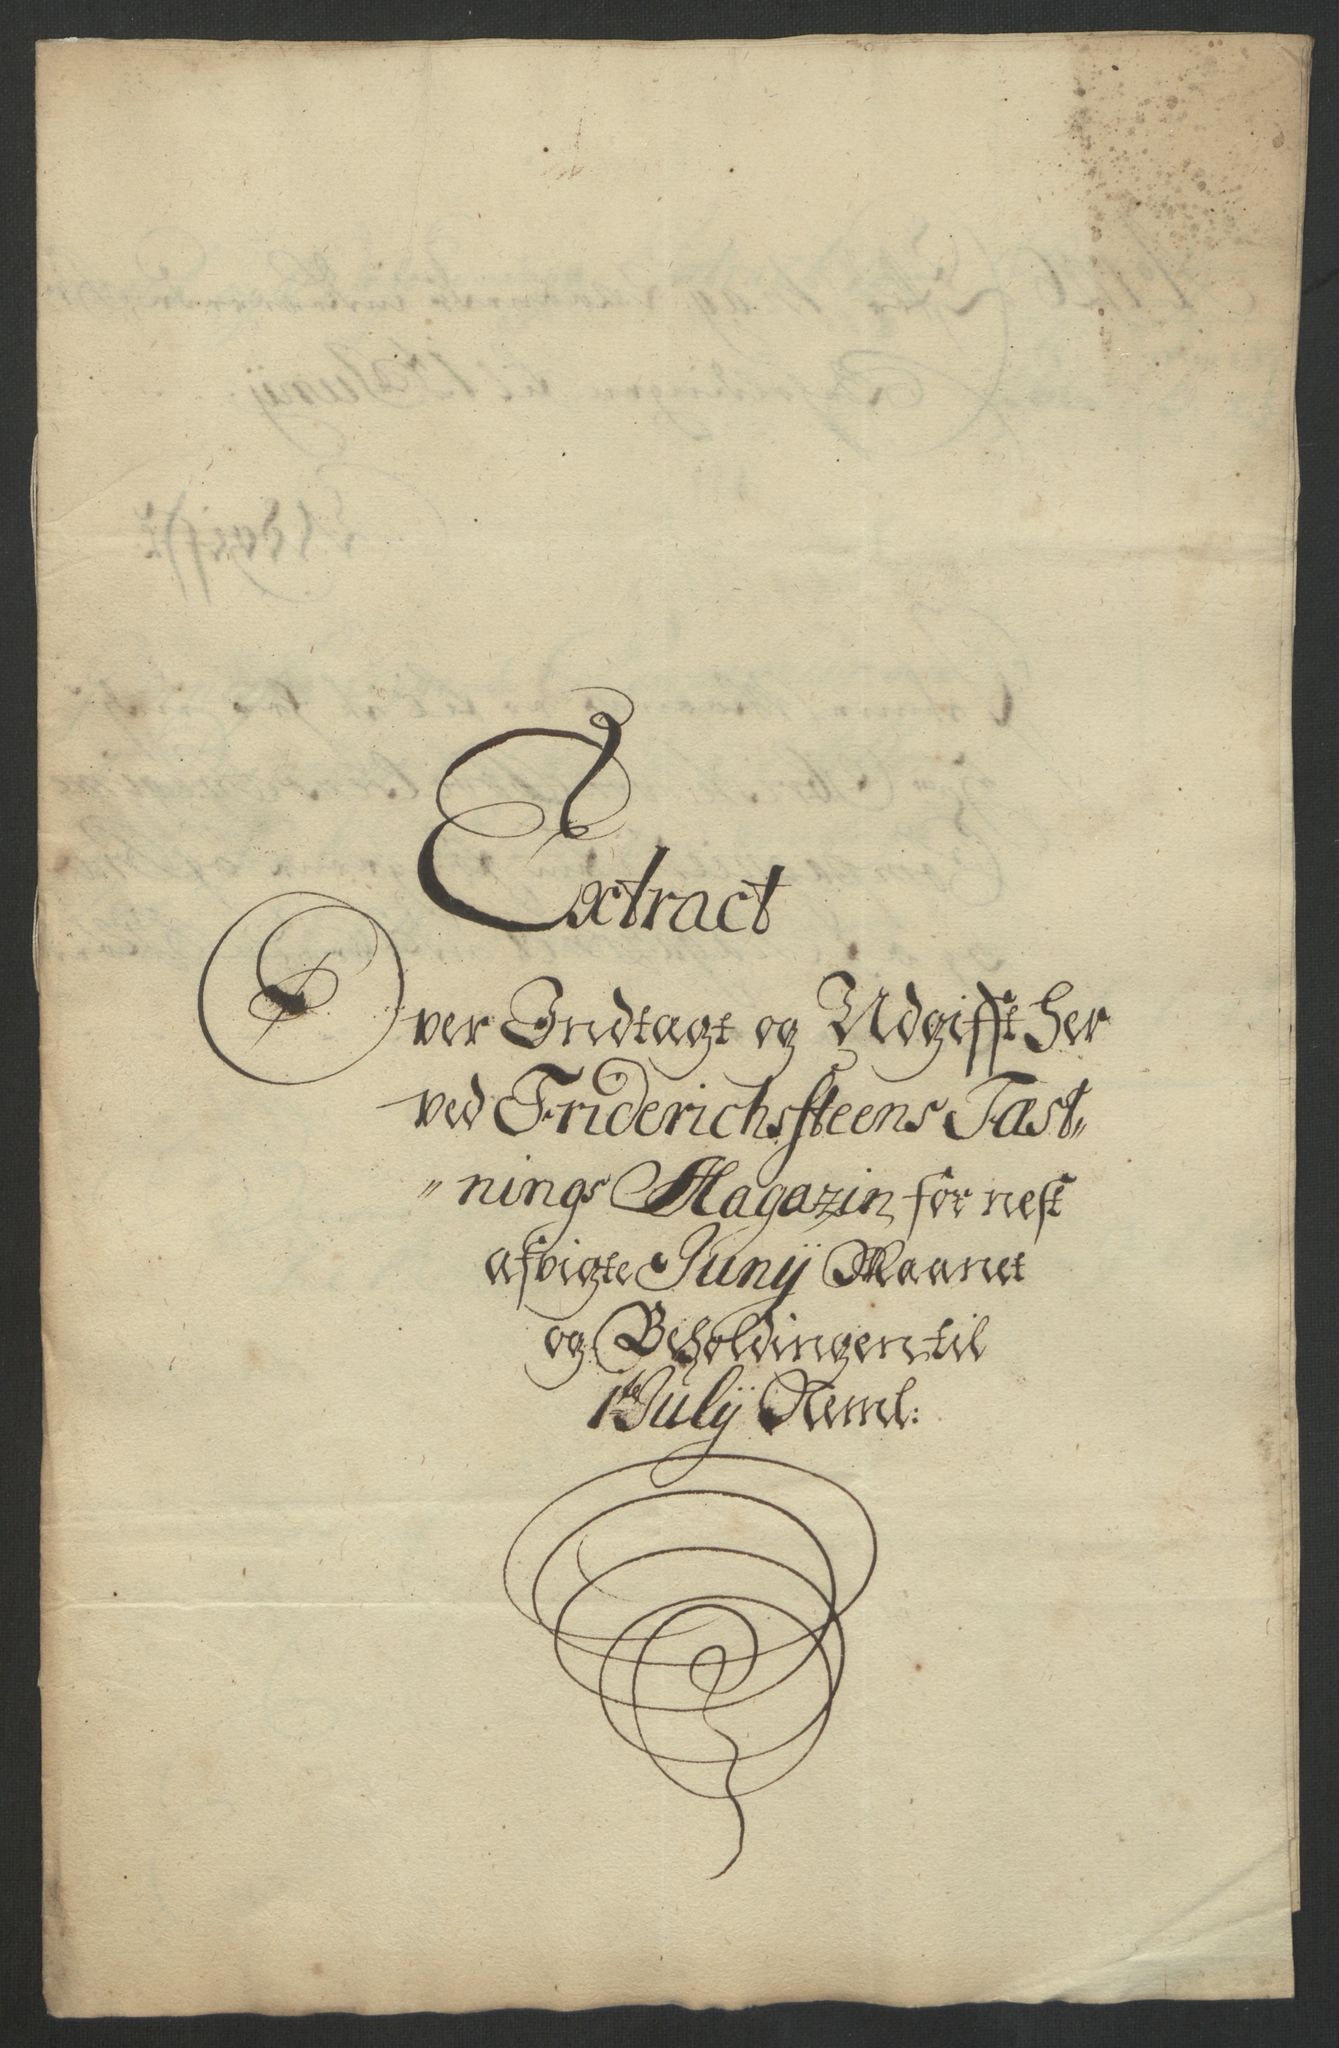 Extract
Over Indtagt og Udgifft her
ved Friderichssteens Fæst„
„nings Magazin for nest
afvigte Junij Maanet
og Beholdingen til
1te Julij Neml: